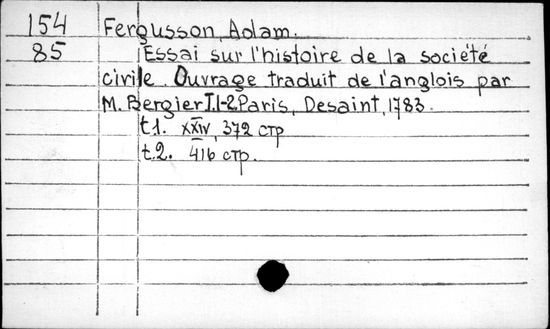 154 Fergusson, Adam.
85 Essai sur l'histoire de la société
civile. Ouvrage traduit de l'anglois par
M. Bergier T.1-2. Paris, Desaint, 1783.
t.1. XXIV, 372 стр
t.2. 416 стр.